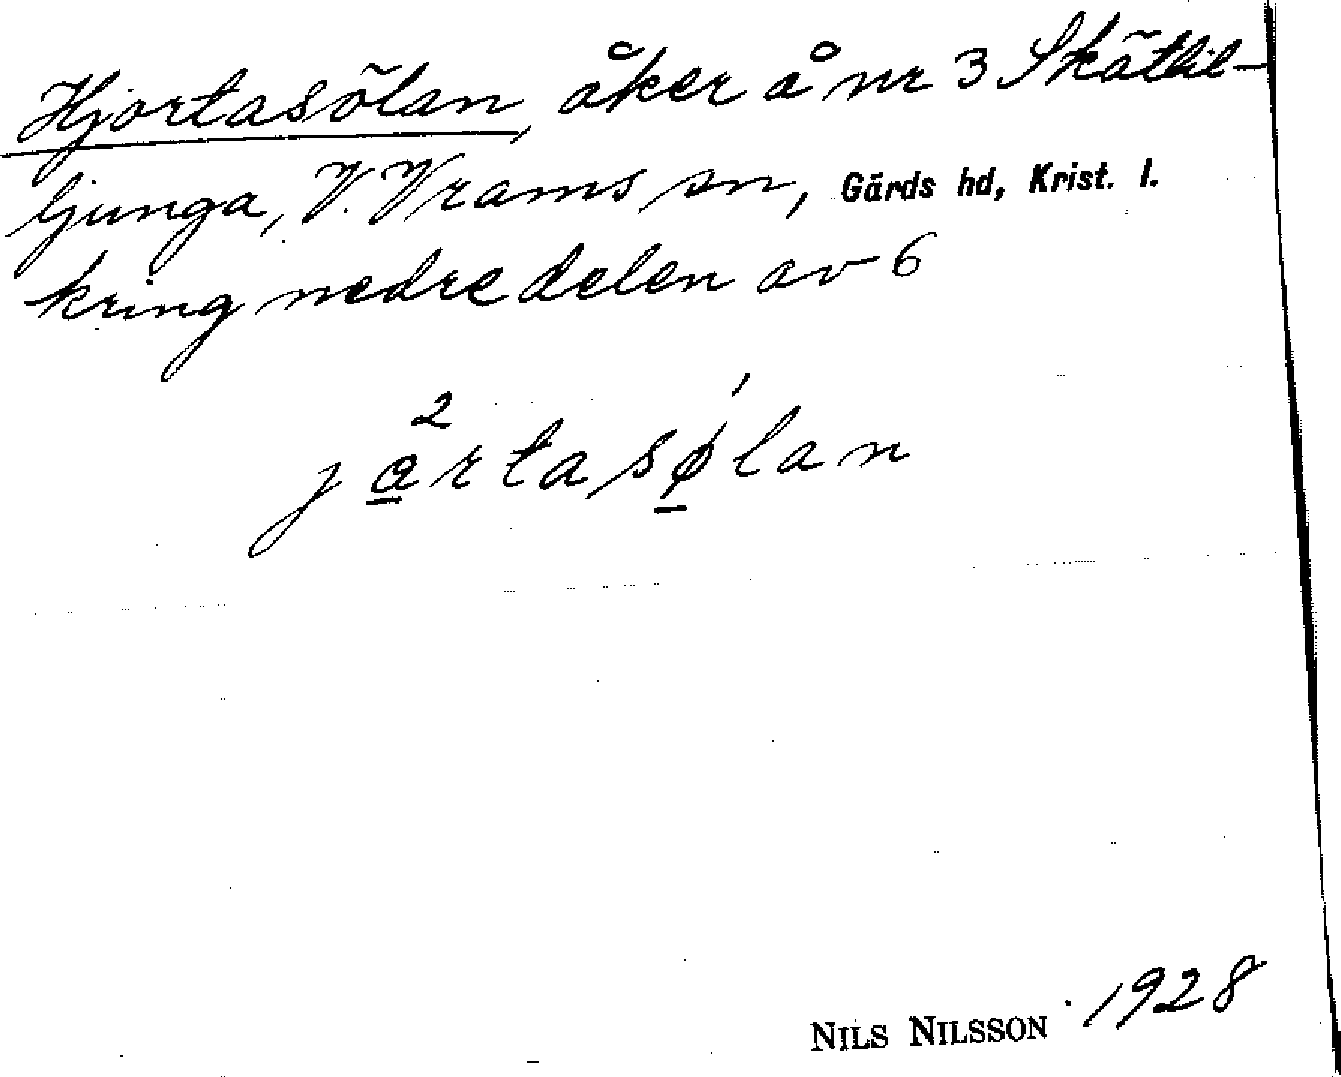 Hjortasölan, åker å nr 3 Skättil-
ljunga, V. Vrams sn, Gärds hd, Krist. l.
kring nedre delen av 6
jartasølan
NILS NILSSON 1928